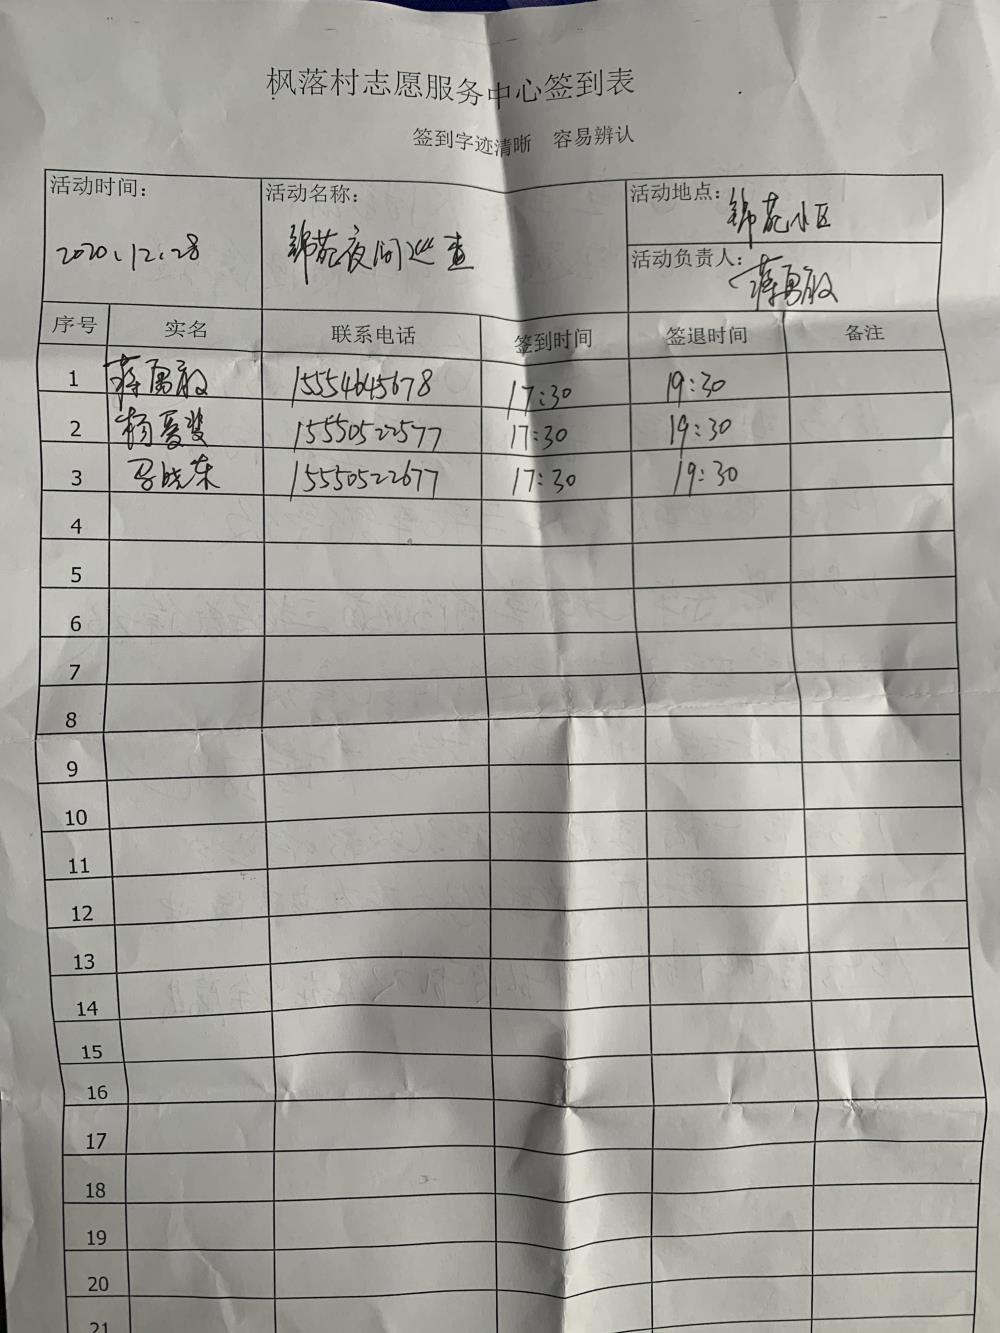 枫落村志愿服务中心签到表
签到字迹清晰 容易辨认
活动时间： 活动名称： 活动地点：锦苑小区
2020.12.28 锦苑夜间巡查
活动负责人：蒋勇敏
序号 实名 联系电话 签到时间 签退时间 备注
1 蒋勇敏 15554645678 17:30 19:30
2 杨 15550522577 17:30 19:30
3 晓东 15550522677 17:30 19:30
4
5
6
7
8
9
10
11
12
13
14
15
16
17
18
19
20
21